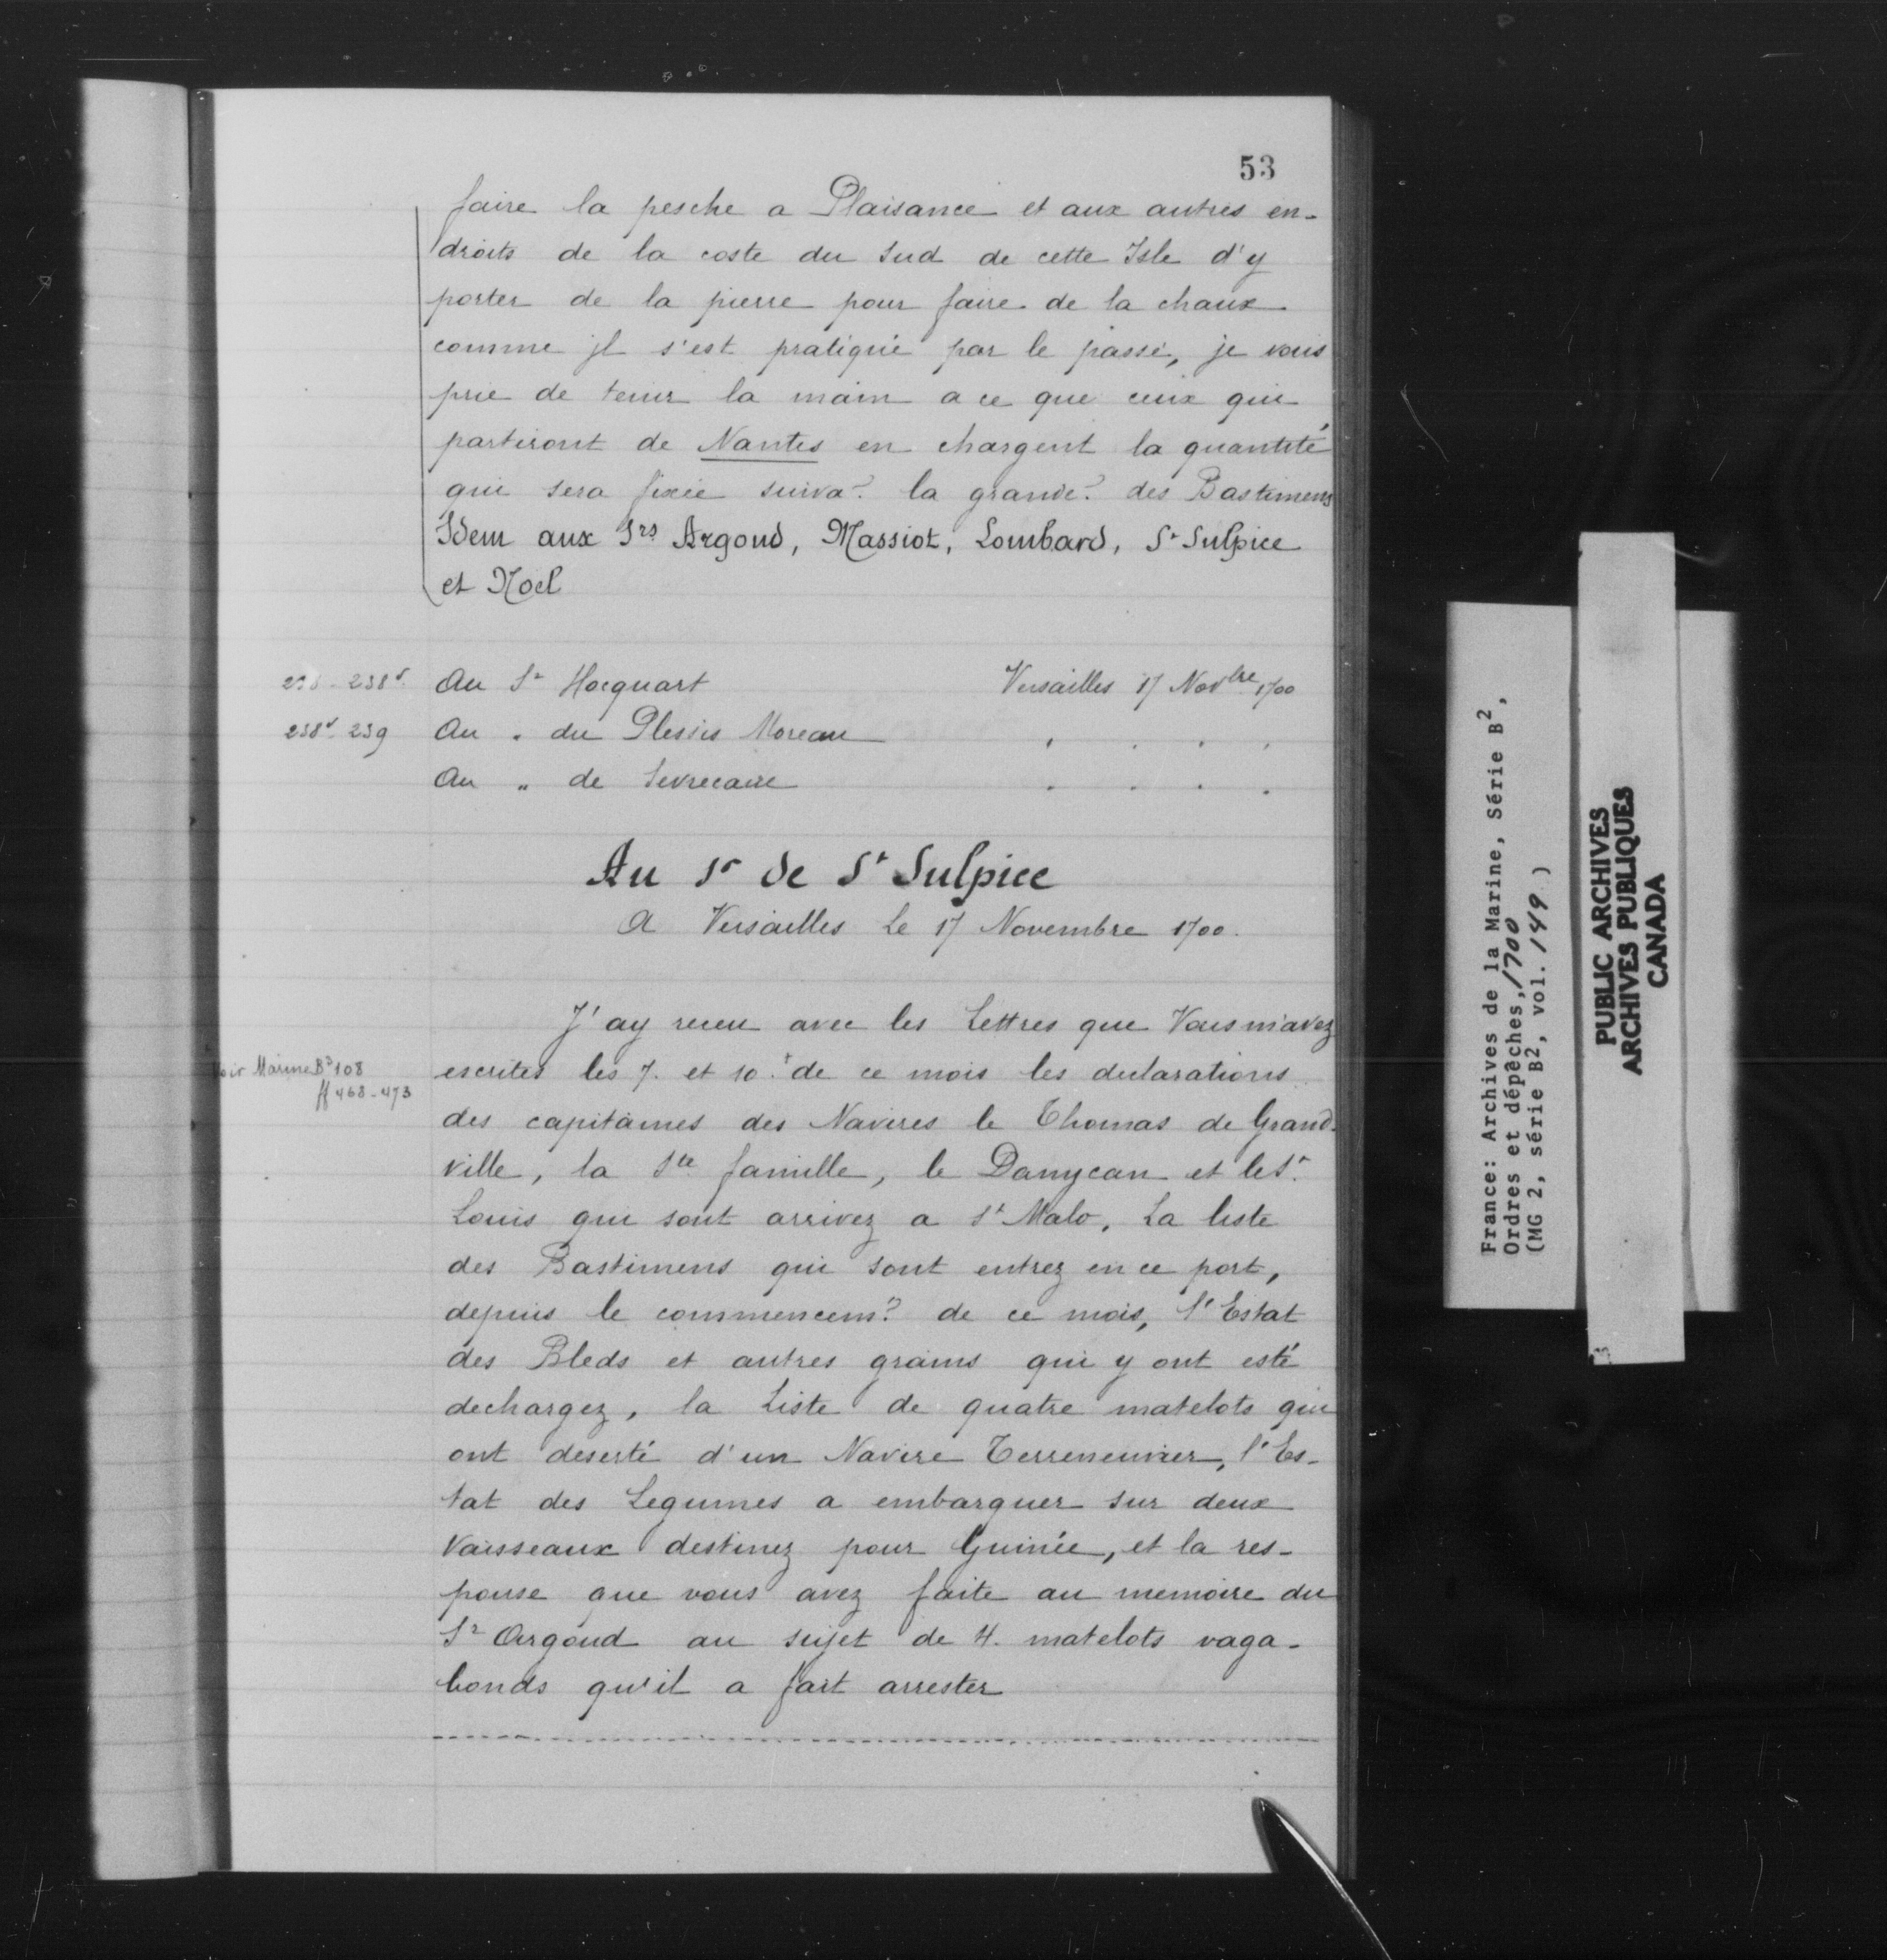 53
faire la pesche a Plaisance et aux autres en-
droits de la coste du Sud de cette Isle d'y
porter de la pierre pour faire de la chaux
comme jl s'est pratiqué par le passé, je vous
prie de tenir la main a ce que ceux qui
partiront de Nantes en chargent la quantité
qui sera fixée suiva.t la grande.r des Bastimens
Idem aux Srs Argoud, Massiot, Lombard, St Sulpice
et Noel
238-238v Au Sr Hocquart Versailles 17 Novbre 1700
238v-239 Au " du Plessis Moreau " " " "
Au " de " " " "
Au Sr de St Sulpice
A Versailles le 17 Novembre 1700.
J'ay receu avec les Lettres que Vous m'avez
voir Marine B3 108
ff 468-473
escrites les 7. et 10.e de ce mois les declarations
des capitaines des Navires le Thomas de Grand-
ville, la Ste famille, le Danycan et le St
Louis qui sont arrivez a St Malo, La liste
des Bastimens qui sont entrez en ce port,
depuis le commencem.t de ce mois, l'Estat
des Bleds et autres grains qui y ont esté
dechargez, la Liste de quatre matelots qui
ont deserté d'un Navire Terreneuvier, l'Es-
tat des Legumes a embarquer sur deux
Vaisseaux destinez pour Guinée, et la res-
ponse que vous avez faite au memoire du
Sr Argoud au sujet de 4. matelots vaga-
bonds qu'il a fait arrester
France: Archives de la Marine, Série B2,
Ordres et dépêches, 1700
(MG 2, série B2, vol. 149 )
PUBLIC ARCHIVES
ARCHIVES PUBLIQUES
CANADA